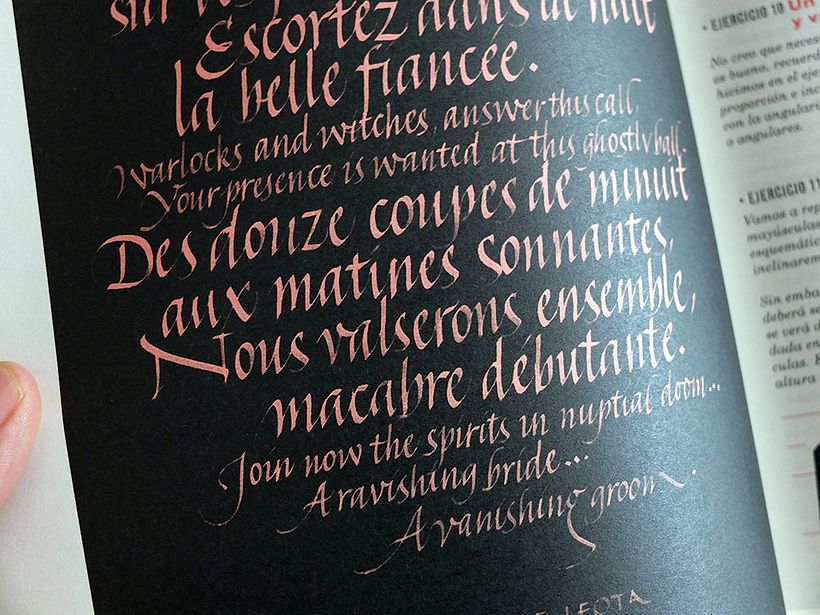 Escortez dans la nuit
la belle fiancée.
Warlocks and witches, answer this call,
Your presence is wanted at this ghostly ball.
Des douze coupes de minuit
aux matines sonnantes,
Nous valserons ensemble,
macabre débutante.
Join now the spirits in nuptial doom...
A ravishing bride...
A vanishing groom.
LEOTA
• EJERCICIO 10
y
No creo que
es bueno,
hicimos en el
proporción e
con la
o angulares.
• EJERCICIO 11
Vamos a
mayúsculas
Sin
deberá
se verá
dada en
altura